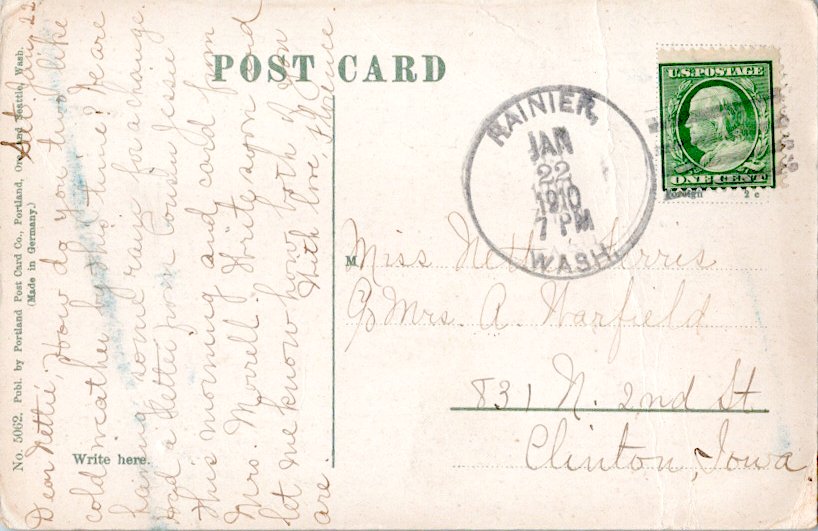 POST CARD
No. 5062. Publ. by Portland Post Card Co., Portland, Ore. and Seattle, Wash.
(Made in Germany.)
Write here.
Sat. Jan'y 22
Dear Nettie, How do you two like
cold weather by this time? We are
having some rain for a change.
Had a letter from Cousin Jessie
this morning and card from
Mrs. Morrell. Write again and
let me know how both of you
are. With love, Florence.
RAINIER,
JAN
22
1910
7 PM
WASH.
U.S. POSTAGE
ONE CENT
Foreign 2c
Miss Nettie
c/o Mrs. A. Warfield
831 N. 2nd St.
Clinton, Iowa